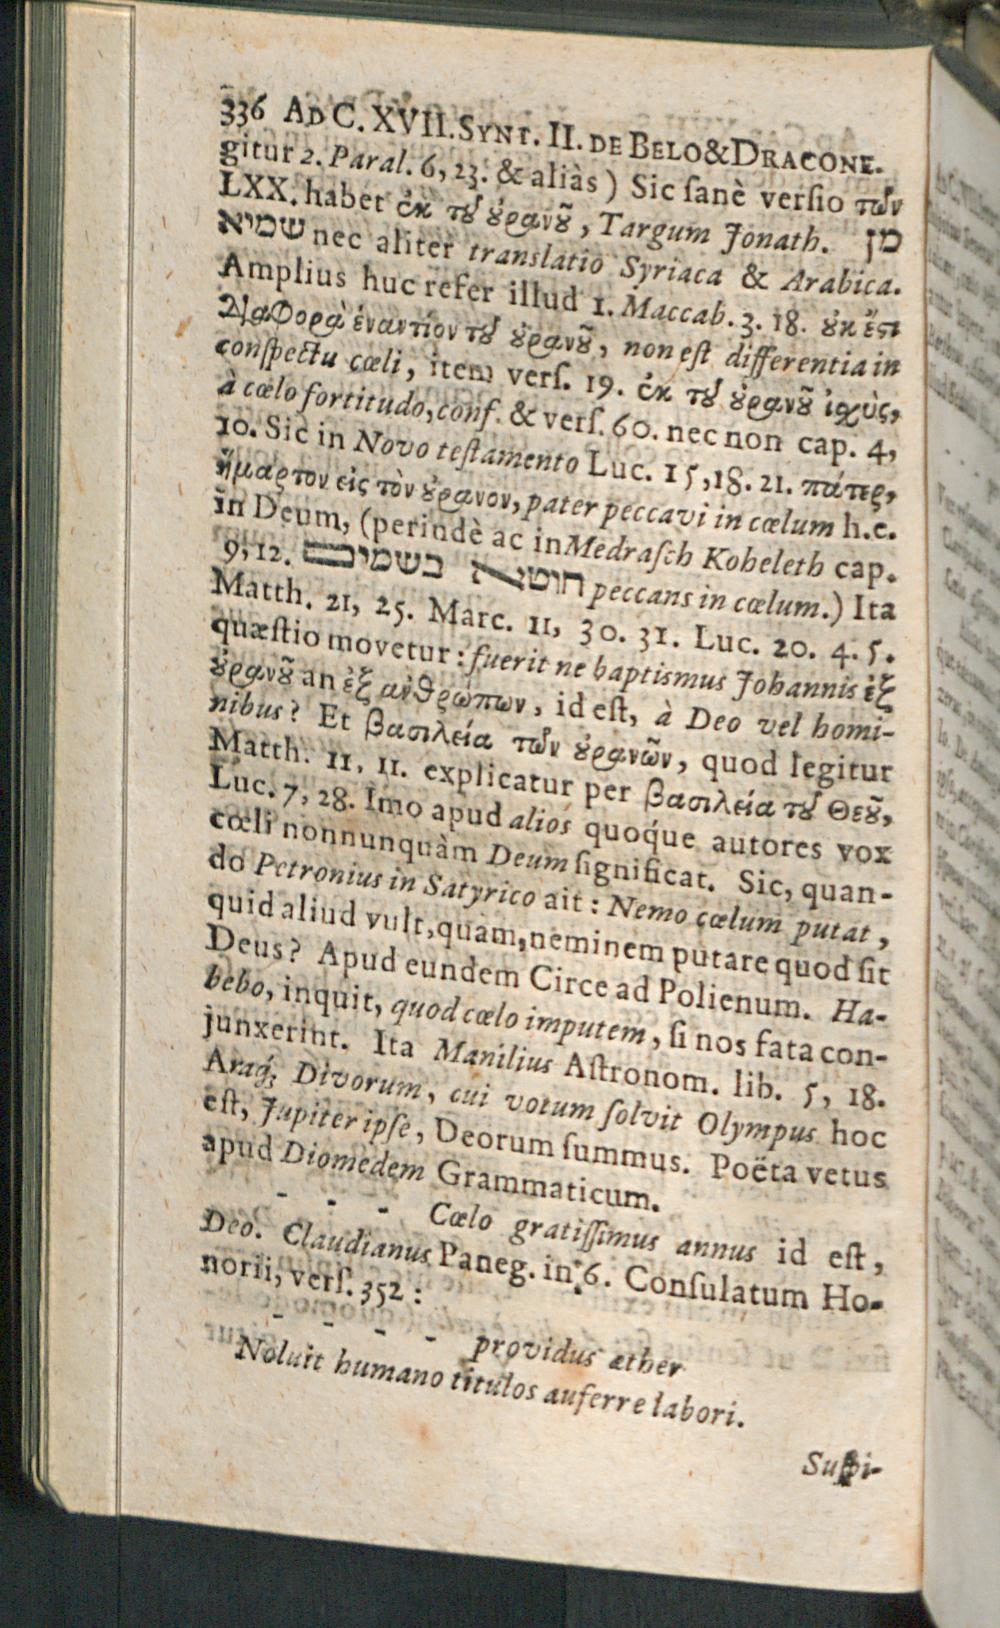 336 AD C. XVII. SYNT. II. DE BELO & DRACONE.
gitur 2. Paral. 6, 23. & aliàs ) Sic ſanè verſio τῶν
LXX. habet ἐκ τοῦ οὐρανοῦ, Targum Jonath. מן
שמיא nec aliter translatio Syriaca & Arabica.
Amplius huc refer illud 1. Maccab. 3. 18. οὐκ ἔστι
διαφορὰ ἐναντίον τοῦ οὐρανοῦ, non eſt differentia in
conſpectu cœli, item verſ. 19. ἐκ τοῦ οὐρανοῦ ἰσχὺς,
à cœlo fortitudo, conf. & verſ. 60. nec non cap. 4,
10. Sic in Novo teſtamento Luc. 15,18. 21. πάτερ,
ἥμαρτον εἰς τὸν οὐρανον, pater peccavi in cœlum h.e.
in Deum, (perindè ac in Medraſch Koheleth cap.
9, 12. חוטא בשמים peccans in cœlum.) Ita
Matth. 21, 25. Marc. 11, 30. 31. Luc. 20. 4. 5.
quæſtio movetur: fuerit ne baptismus Johannis ἐξ
οὐρανοῦ an ἐξ ανθρώπων, id eſt, à Deo vel homi-
nibus? Et βασιλεία τῶν οὐρανῶν, quod legitur
Matth. 11, 11. explicatur per βασιλεία τοῦ Θεοῦ,
Luc. 7, 28. Imo apud alios quoque autores vox
cœli nonnunquàm Deum ſignificat. Sic, quan-
do Petronius in Satyrico ait: Nemo cœlum putat,
quid aliud vult, quàm, neminem putare quod ſit
Deus? Apud eundem Circe ad Polienum. Ha-
bebo, inquit, quod cœlo imputem, ſi nos fata con-
junxerint. Ita Manilius Aſtronom. lib. 5, 18.
Araq; Divorum, cui votum ſolvit Olympus hoc
eſt, Jupiter ipſe, Deorum ſummus. Poëta vetus
apud Diomedem Grammaticum.
- - - Cœlo gratiſſimus annus id eſt,
Deo. Claudianus Paneg. in 6. Conſulatum Ho-
norii, verſ. 352 :
- - - - providus æther
Noluit humano titulos auferre labori.
Suſpi-